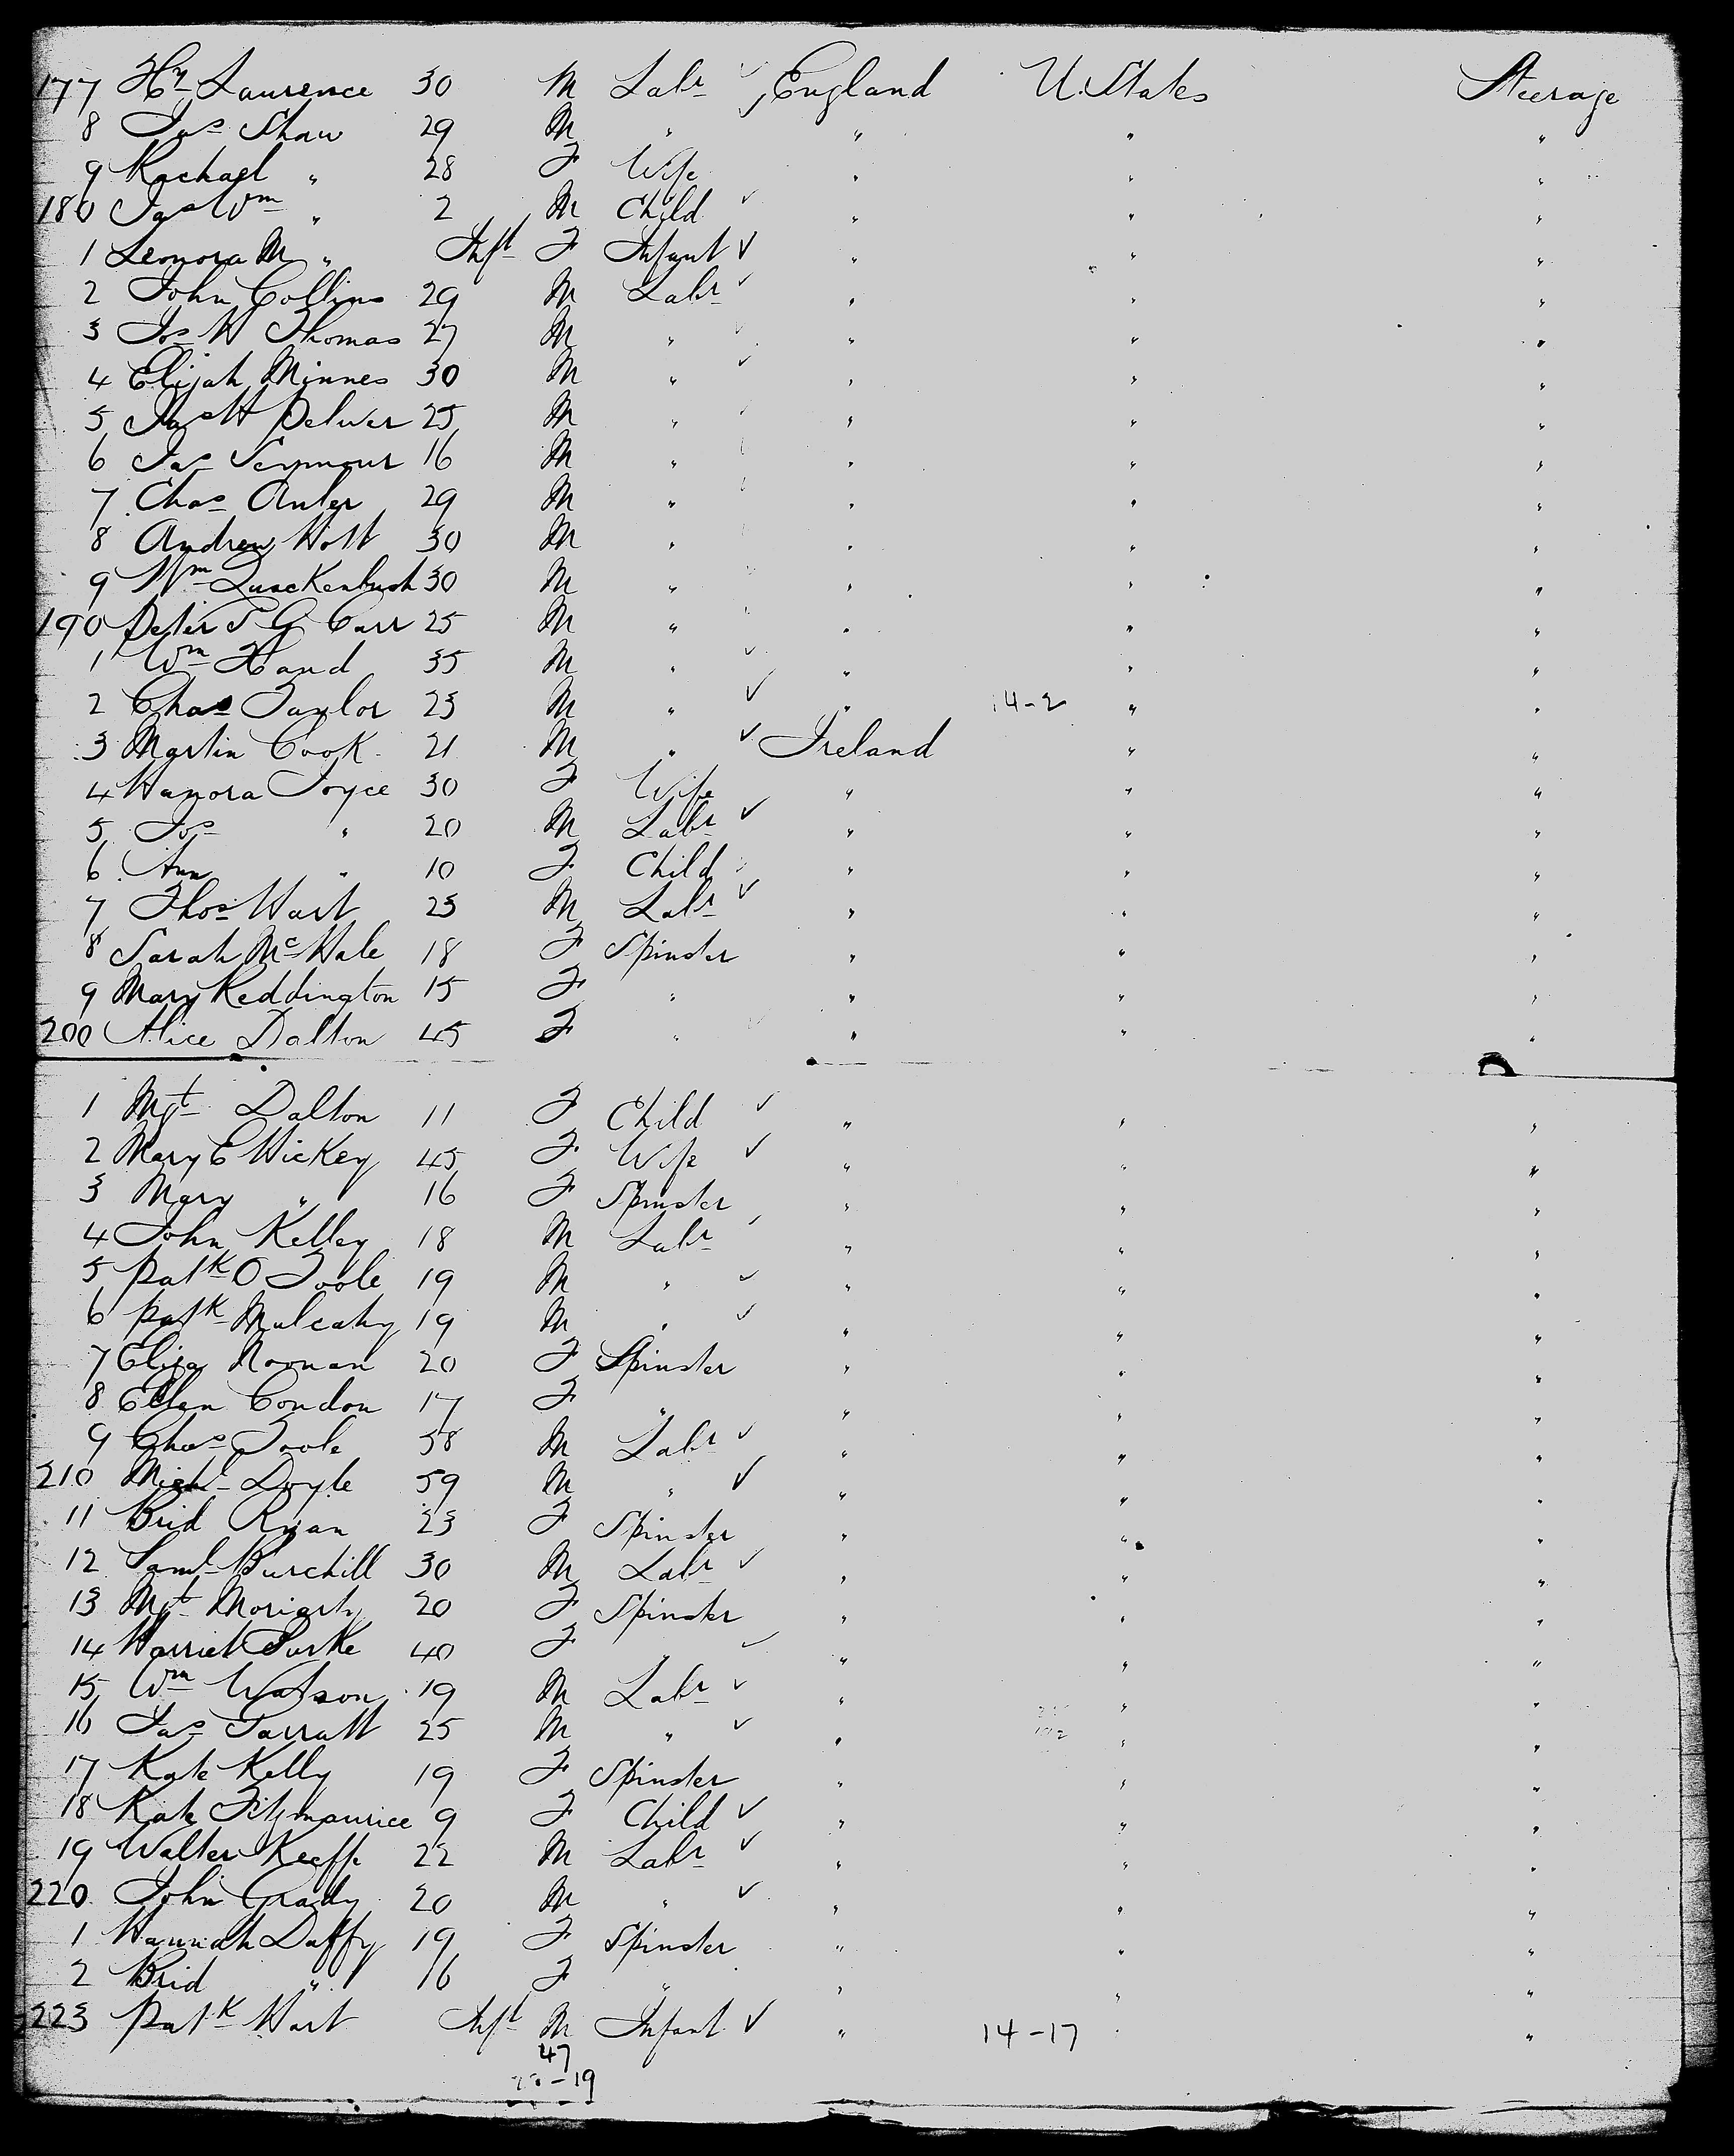 177 Hy Laurence 30 M Labr England U. States Steerage
8 Jas Shaw 29 M " " " "
9 Rachael " 28 F Wife " " "
180 Jas Wm " 2 M Child " " "
1 Leonora M " Inft F Infant " " "
2 John Collins 29 M Labr " " "
3 Jos H Thomas 27 M " " " "
4 Elijah Minnes 30 M " " " "
5 Jas H Pelwer 25 M " " " "
6 Jas Seymour 16 M " " " "
7 Chas Anter 29 M " " " "
8 Andrew Holt 30 M " " " "
9 Wm Quackenbush 30 M " " " "
190 Peter S G Carr 25 M " " " "
1 Wm Hand 35 M " " " "
2 Chas Taylor 23 M " " 14-2 " "
3 Martin Cook 21 M " Ireland " "
4 Hanora Joyce 30 F Wife " " "
5 Jos " 20 M Labr " " "
6 Ann " 10 F Child " " "
7 Thos Hart 23 M Labr " " "
8 Sarah McHale 18 F Spinster " " "
9 Mary Reddington 15 F " " " "
200 Alice Dalton 45 F " " " "
1 Mgt Dalton 11 F Child " " "
2 Mary E Hickey 45 F Wife " " "
3 Mary " 16 F Spinster " " "
4 John Kelley 18 M Labr " " "
5 Patk O Toole 19 M " " " "
6 Patk Mulcahy 19 M " " " "
7 Eliza Noonan 20 F Spinster " " "
8 Ellen Condon 17 F " " " "
9 Chas Toole 58 M Labr " " "
210 Michl Doyle 59 M " " " "
11 Brid Ryan 23 F Spinster " " "
12 Saml Burchill 30 M Labr " " "
13 Mgt Moriarty 20 F Spinster " " "
14 Harriet Burke 40 F " " " "
15 Wm Watson 19 M Labr " " "
16 Jas Parratt 25 M " " " "
17 Kate Kelly 19 F Spinster " " "
18 Kate Fitzmaurice 9 F Child " " "
19 Walter Keeffe 22 M Labr " " "
220 John Grady 20 M " " " "
1 Hannah Duffy 19 F Spinster " " "
2 Brid " 16 F " " " "
223 Patk Hart Inft M Infant " 14-17 " "
47
-19